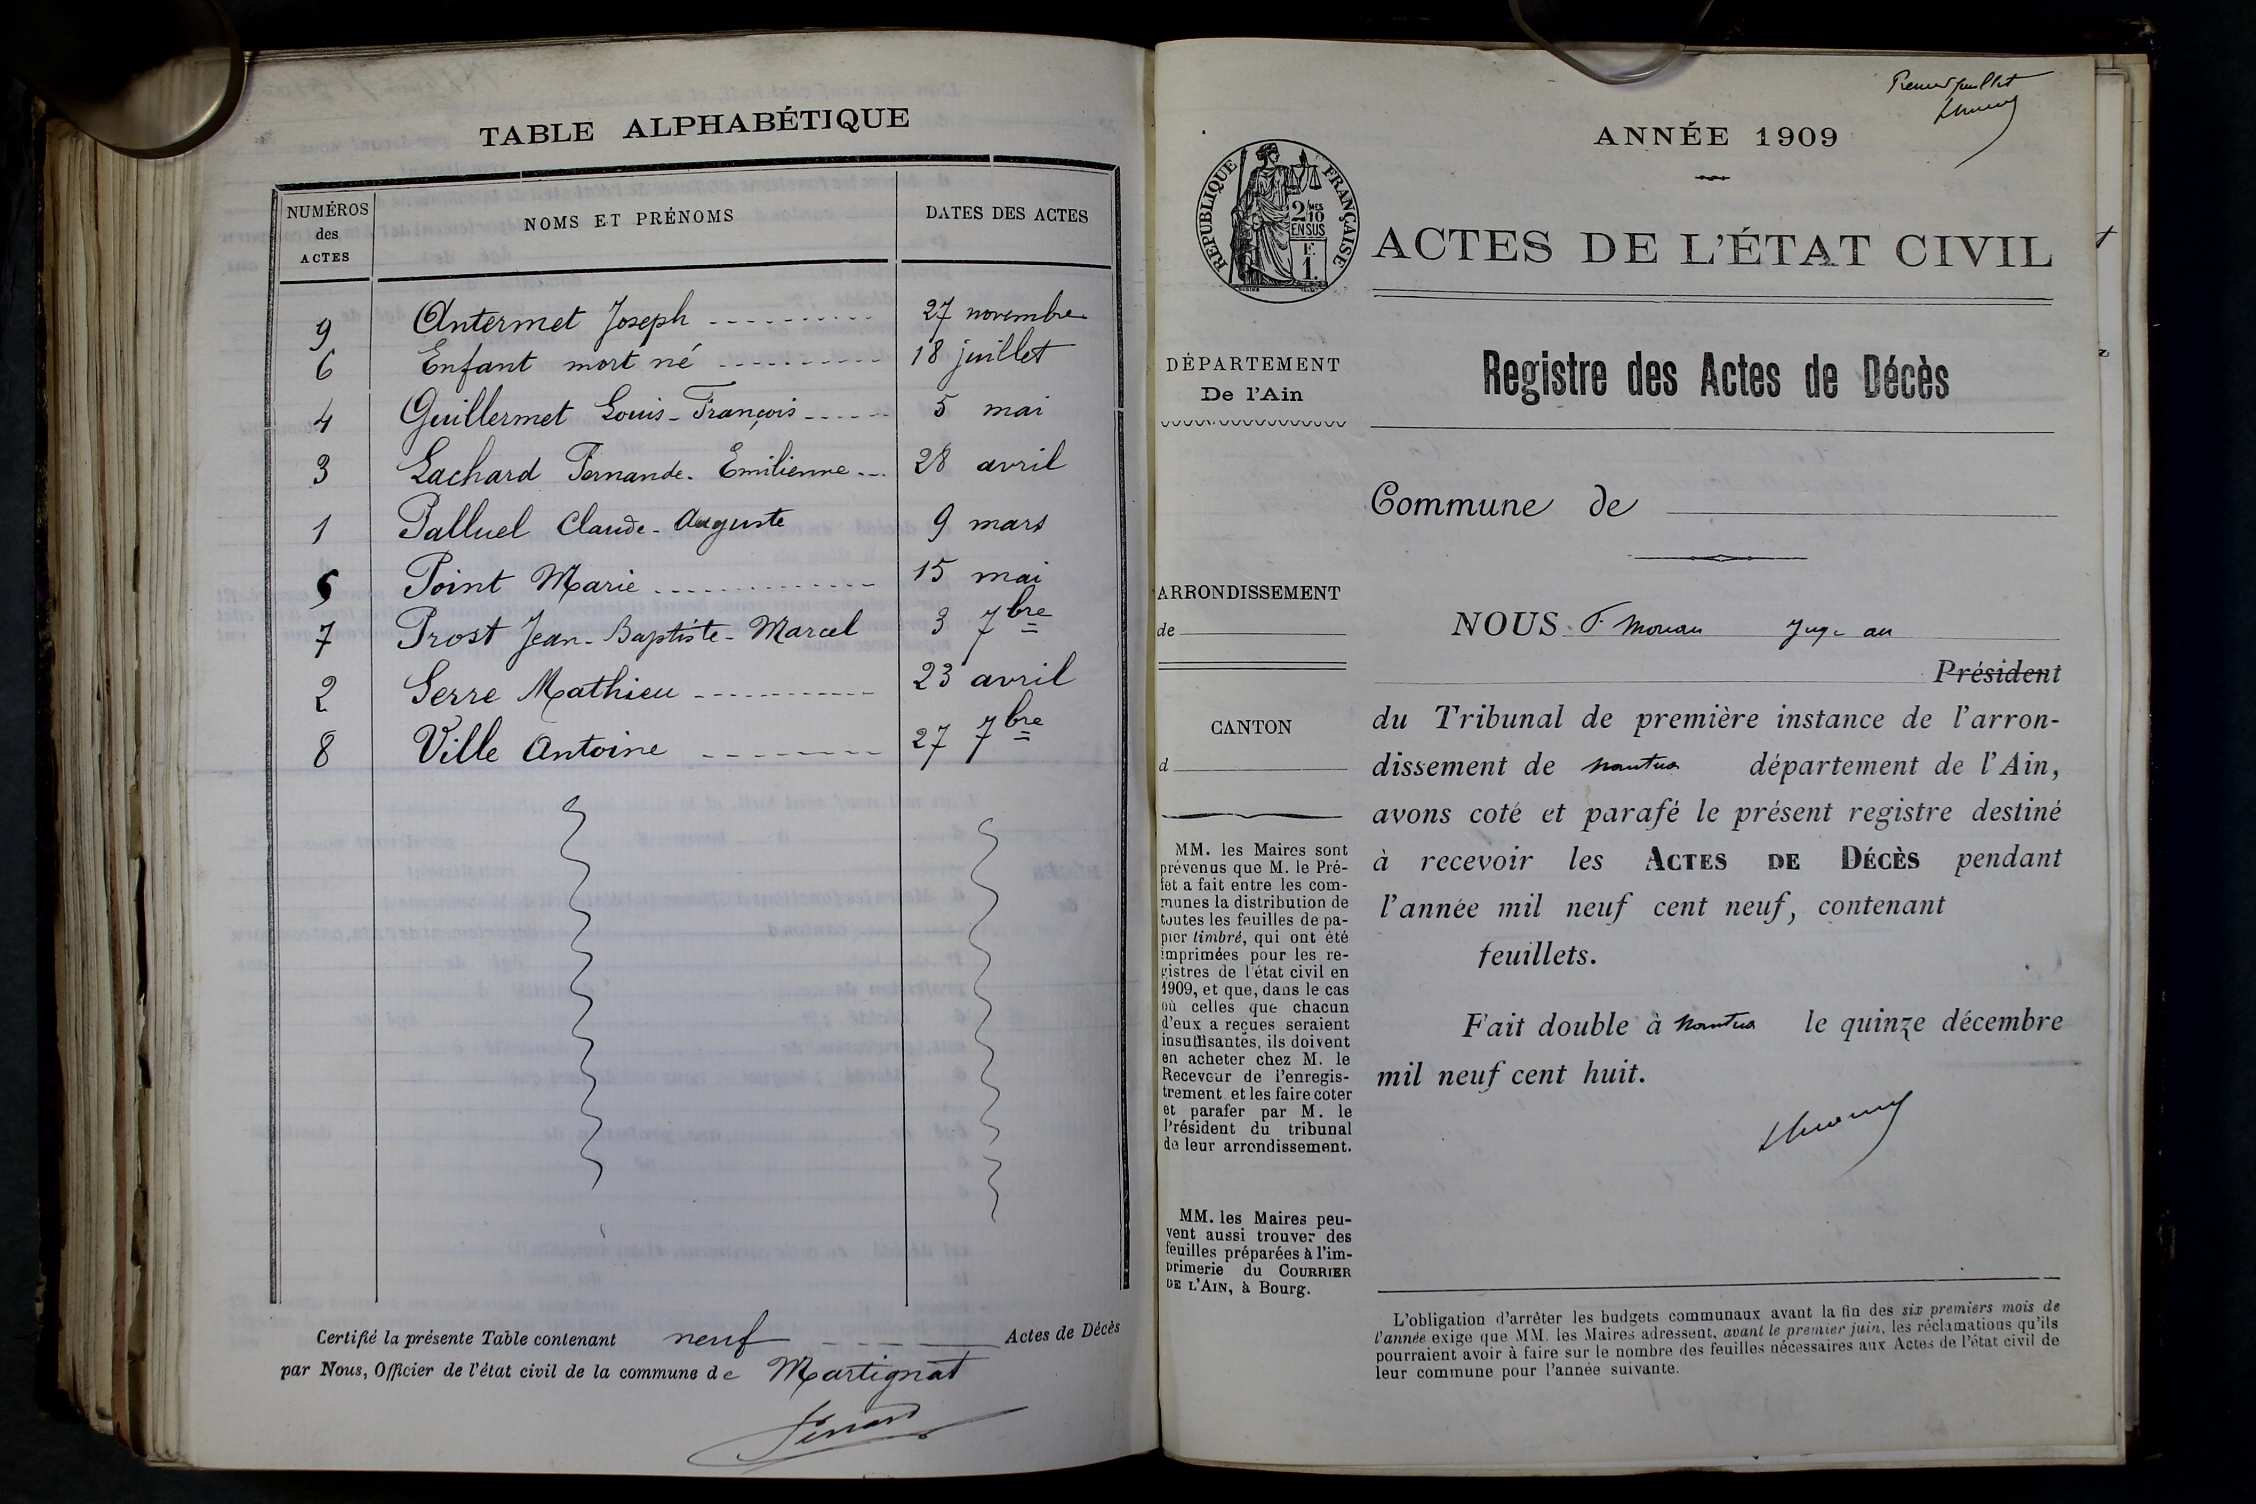 TABLE ALPHABÉTIQUE
NUMÉROS des ACTES
NOMS ET PRÉNOMS
DATES DES ACTES
9 Antermet Joseph 27 novembre
6 Enfant mort né 18 juillet
4 Guillermet Louis-François 5 mai
3 Lachard Fernande-Emilienne 28 avril
1 Palluel Claude-Auguste 9 mars
5 Point Marie 15 mai
7 Prost Jean-Baptiste-Marcel 3 7bre
2 Serre Mathieu 23 avril
8 Ville Antoine 27 7bre
Certifié la présente Table contenant neuf Actes de Décès
par Nous, Officier de l'état civil de la commune de Martignat
Premier feuillet
ANNÉE 1909
RÉPUBLIQUE FRANÇAISE
2/10 MES
EN SUS
F.
1.
ACTES DE L'ÉTAT CIVIL
DÉPARTEMENT
De l'Ain
Registre des Actes de Décès
Commune de
ARRONDISSEMENT
de
CANTON
d
MM. les Maires sont
prévenus que M. le Pré-
fet a fait entre les com-
munes la distribution de
toutes les feuilles de pa-
pier timbré, qui ont été
imprimées pour les re-
gistres de l'état civil en
1909, et que, dans le cas
où celles que chacun
d'eux a reçues seraient
insuffisantes, ils doivent
en acheter chez M. le
Receveur de l'enregis-
trement et les faire coter
et parafer par M. le
Président du tribunal
de leur arrondissement.
MM. les Maires peu-
vent aussi trouver des
feuilles préparées à l'im-
primerie du COURRIER
DE L'AIN, à Bourg.
NOUS Juge au
Président
du Tribunal de première instance de l'arron-
dissement de Nantua département de l'Ain,
avons coté et parafé le présent registre destiné
à recevoir les ACTES DE DÉCÈS pendant
l'année mil neuf cent neuf, contenant
feuillets.
Fait double à Nantua le quinze décembre
mil neuf cent huit.
L'obligation d'arrêter les budgets communaux avant la fin des six premiers mois de
l'année exige que MM. les Maires adressent, avant le premier juin, les réclamations qu'ils
pourraient avoir à faire sur le nombre des feuilles nécessaires aux Actes de l'état civil de
leur commune pour l'année suivante.